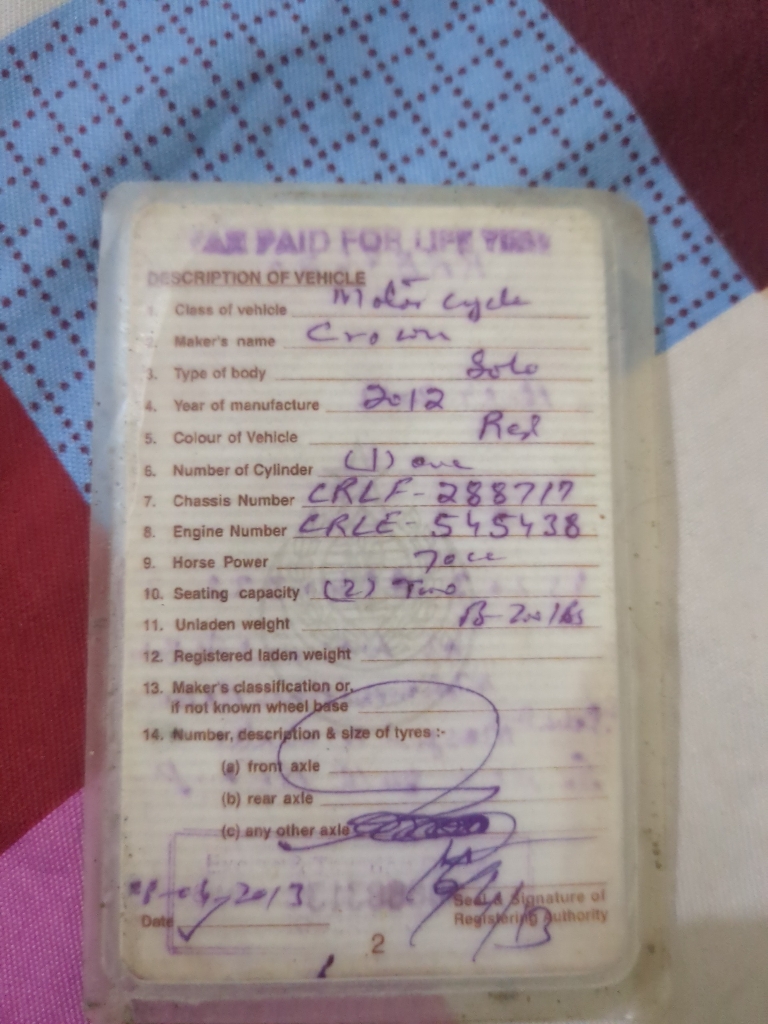 TAX PAID FOR LIFE TIME
DESCRIPTION OF VEHICLE
1. Class of vehicle Motor cycle
2. Maker's name Crown
3. Type of body Solo
4. Year of manufacture 2012
5. Colour of Vehicle Red
6. Number of Cylinder (1) one
7. Chassis Number CRLF-288717
8. Engine Number CRLE-545438
9. Horse Power 70cc
10. Seating capacity (2) Two
11. Unladen weight
12. Registered laden weight
13. Maker's classification or,
if not known wheel base
14. Number, description & size of tyres :-
(a) front axle
(b) rear axle
(c) any other axle
Seal & Signature of
Date 2013 Registering Authority
2